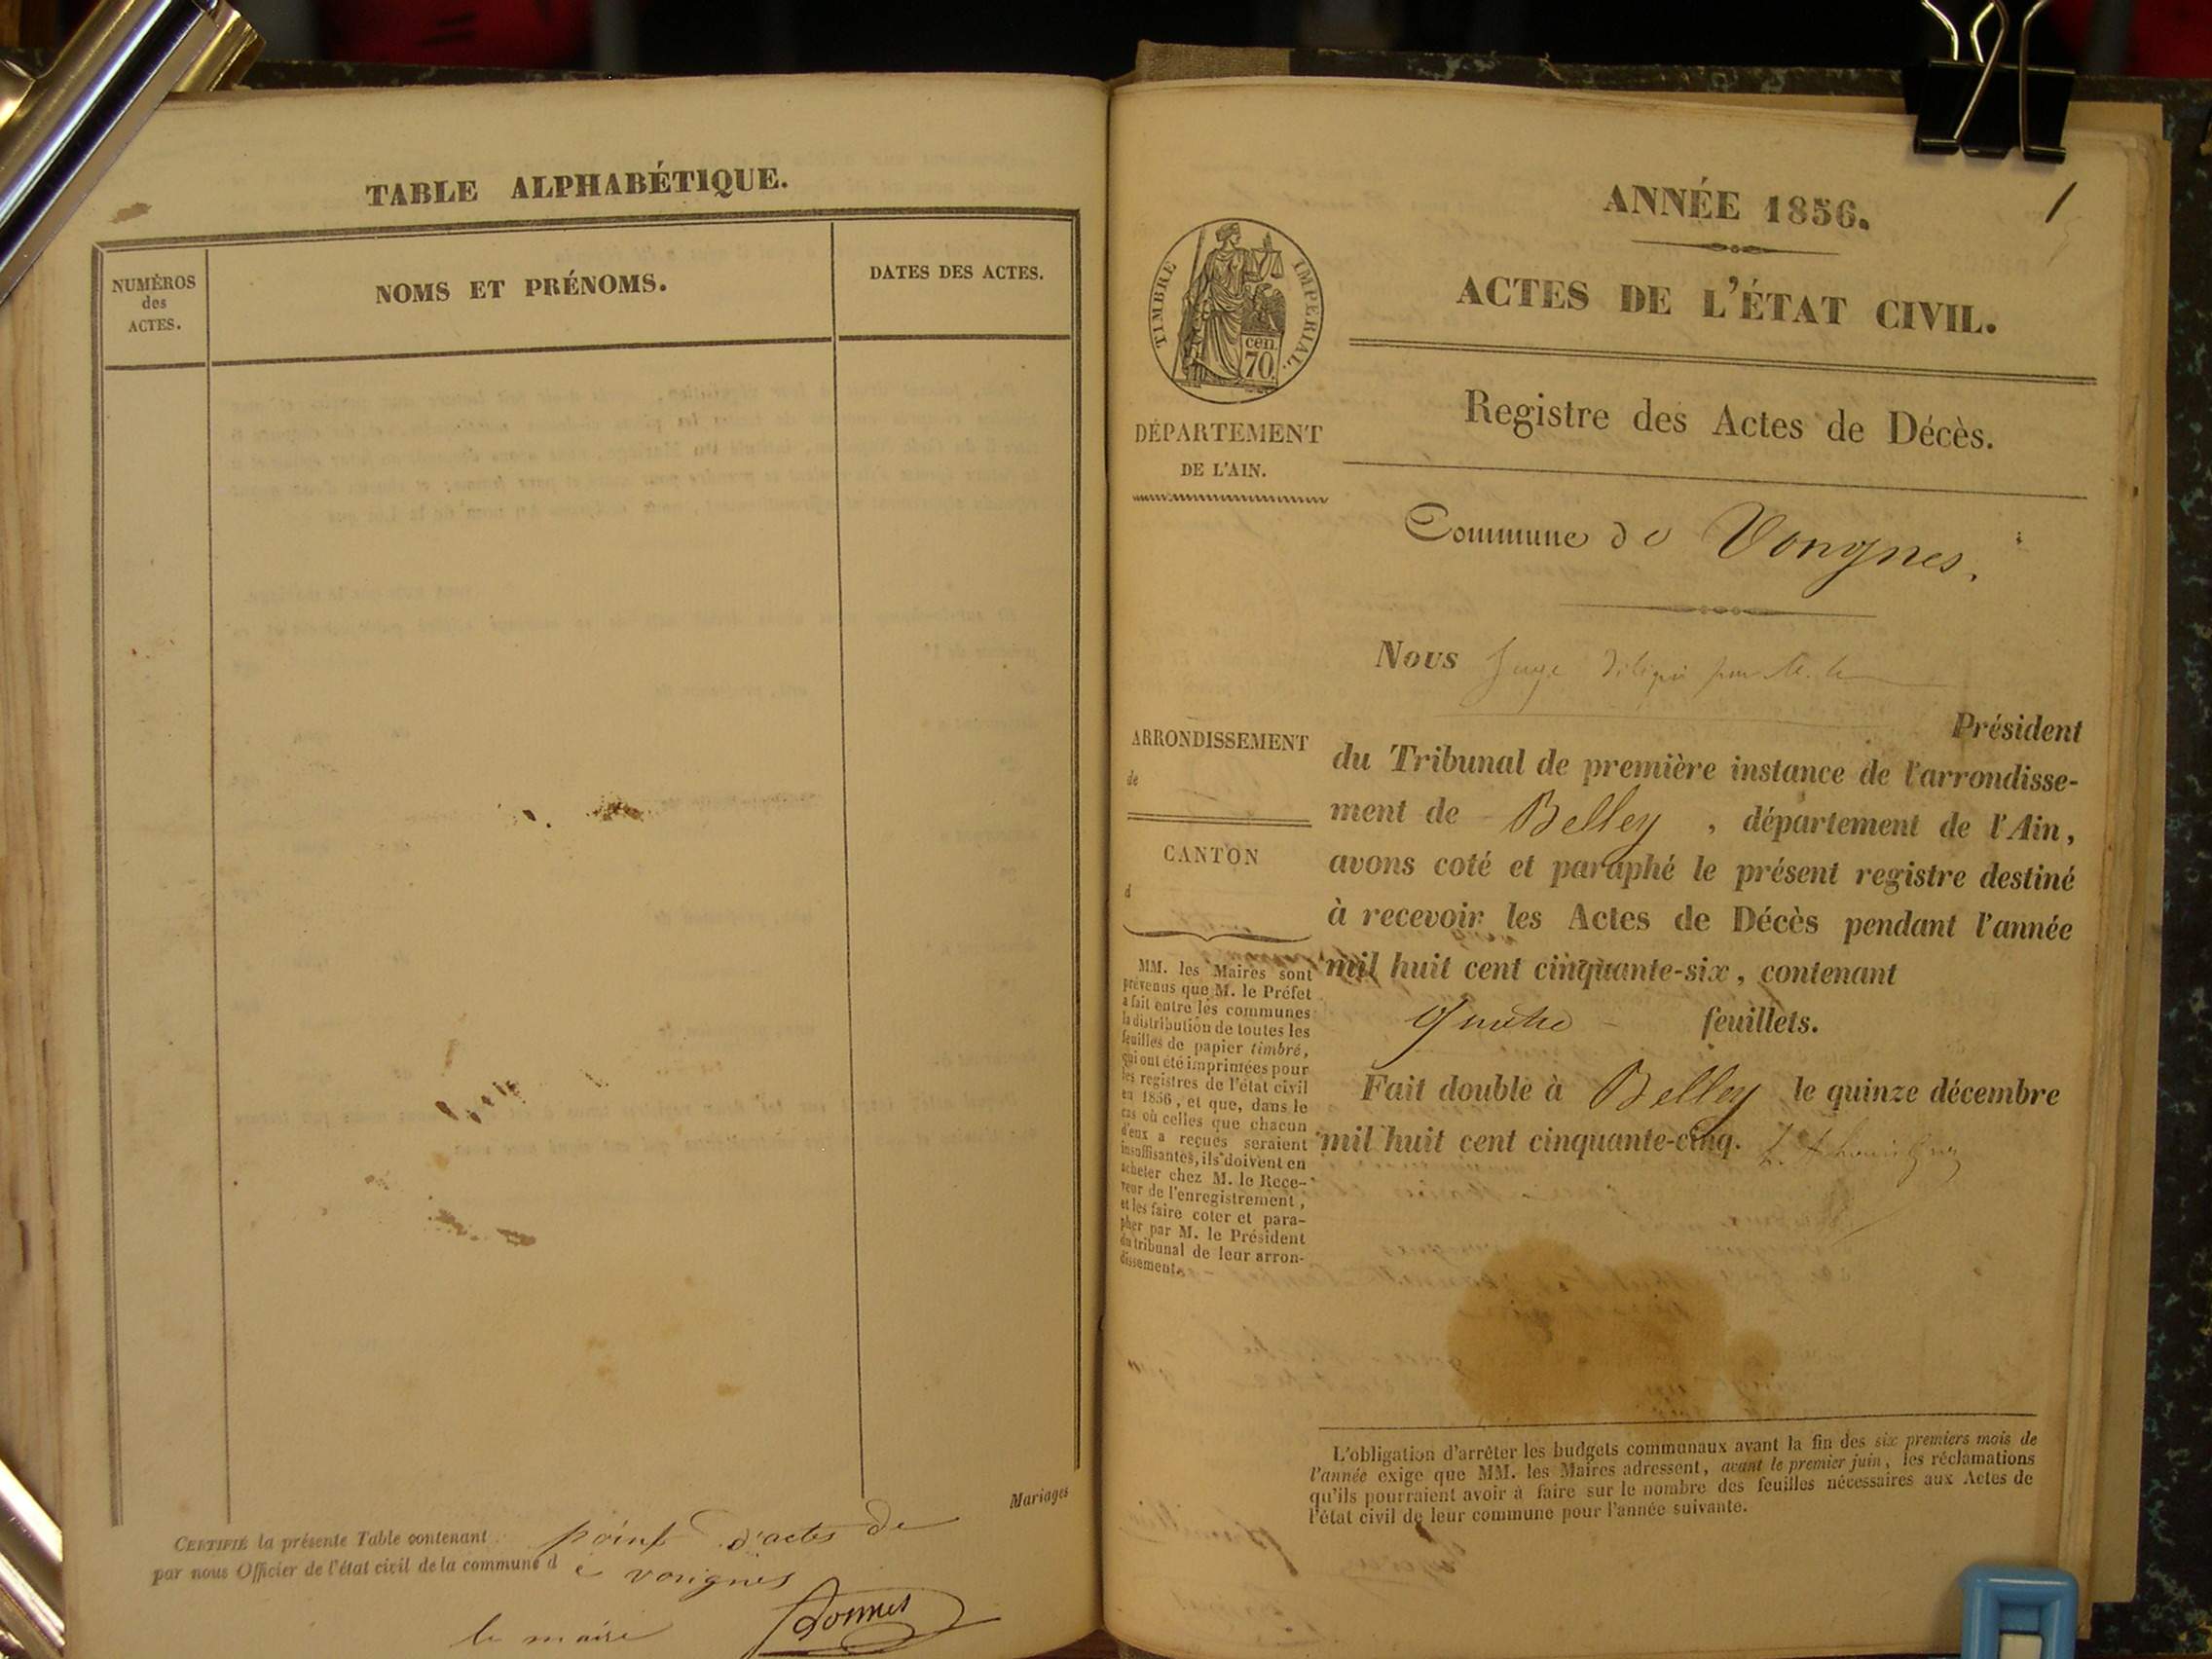 TABLE ALPHABÉTIQUE.
NUMÉROS
des
ACTES.
NOMS ET PRÉNOMS.
DATES DES ACTES.
Mariages
CERTIFIÉ la présente Table contenant point d'actes de
par nous Officier de l'état civil de la commune d e vongnes
le maire
1
ANNÉE 1856.
ACTES DE L'ÉTAT CIVIL.
TIMBRE IMPÉRIAL.
cen.
70.
DÉPARTEMENT
DE L'AIN.
Registre des Actes de Décès.
Commune de Vongnes.
Nous Juge délégué par M. le
Président
du Tribunal de première instance de l'arrondisse-
ment de Belley, département de l'Ain,
avons coté et paraphé le présent registre destiné
à recevoir les Actes de Décès pendant l'année
mil huit cent cinquante-six, contenant
quatre feuillets.
Fait double à Belley le quinze décembre
mil huit cent cinquante-cinq.
ARRONDISSEMENT
de
CANTON
d
MM. les Maires sont
prévenus que M. le Préfet
a fait entre les communes
la distribution de toutes les
feuilles de papier timbré,
qui ont été imprimées pour
les registres de l'état civil
en 1856, et que, dans le
cas où celles que chacun
d'eux a reçues seraient
insuffisantes, ils doivent en
acheter chez M. le Rece-
veur de l'enregistrement,
et les faire coter et para-
pher par M. le Président
du tribunal de leur arron-
dissement.
L'obligation d'arrêter les budgets communaux avant la fin des six premiers mois de
l'année exige que MM. les Maires adressent, avant le premier juin, les réclamations
qu'ils pourraient avoir à faire sur le nombre des feuilles nécessaires aux Actes de
l'état civil de leur commune pour l'année suivante.